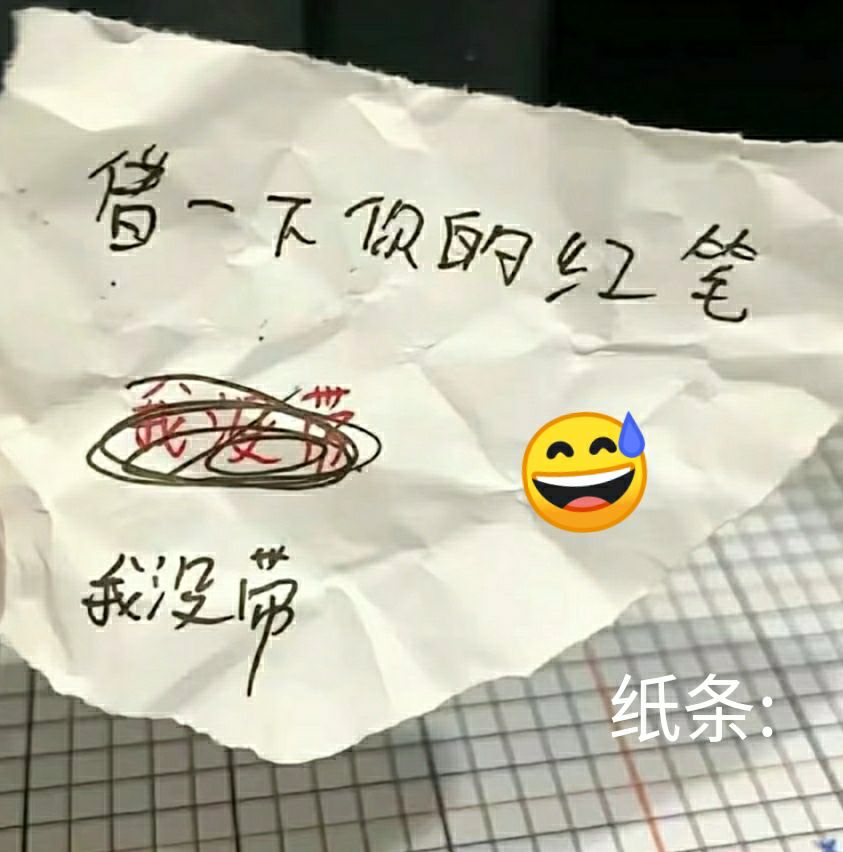 借一下你的红笔
我没带
我没带
纸条: